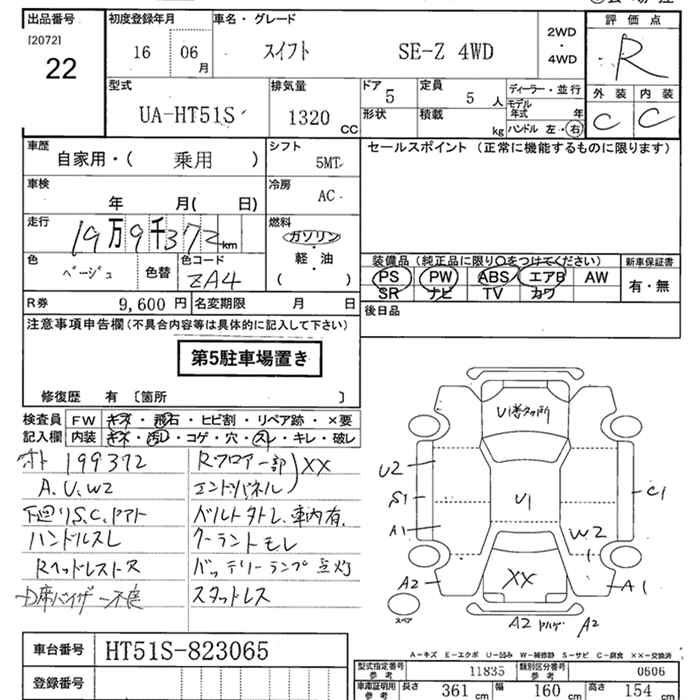 出品番号 初度登録年月 車名・グレード 評価点
[2072] 22 16 06月 スイフト SE-Z 4WD 2WD・4WD R
型式 排気量 ドア 5 定員 5人 ディーラー・並行 外装 内装
UA-HT51S 1320cc 形状 積載 kg モデル年式 年 C C
ハンドル 左・右
車歴 シフト セールスポイント (正常に機能するものに限ります)
自家用・( 乗用 ) 5MT
車検 冷房
年 月( 日) AC
走行 燃料
19万9千372km ガソリン
色 色コード 軽・油
ベージュ 色替 ZA4 ( )
装備品 (純正品に限り○をつけてください) 新車保証書
PS PW ABS エアB AW 有・無
SR ナビ TV カワ
R券 9,600円 名変期限 月 日 後日品
注意事項申告欄(不具合内容等は具体的に記入して下さい)
第5駐車場置き
修復歴 有 〔箇所 〕
検査員 FW キズ・飛石・ヒビ割・リペア跡・×要
記入欄 内装 キズ・汚レ・コゲ・穴・スレ・キレ・破レ
オド 199372 Rフロアー部
A.U.W2 エンドパネル XX
下廻りS.C. ベルト タトレ.車内有.
ハンドルスレ クーラントモレ
Rヘッドレストヌケ バッテリーランプ点灯
D席バイザー不良 スタッドレス
U2
S1
A1
A2
U1
XX
C1
W2
A1
A2
A2
スペア
A-キズ E-エクボ U-凹み W-補修跡 S-サビ C-腐食 ××-交換済
車台番号 HT51S-823065
登録番号
型式指定番号 参考 11835 類別区分番号 参考 0606
車庫証明用 参考 長さ 361cm 幅 160cm 高さ 154cm